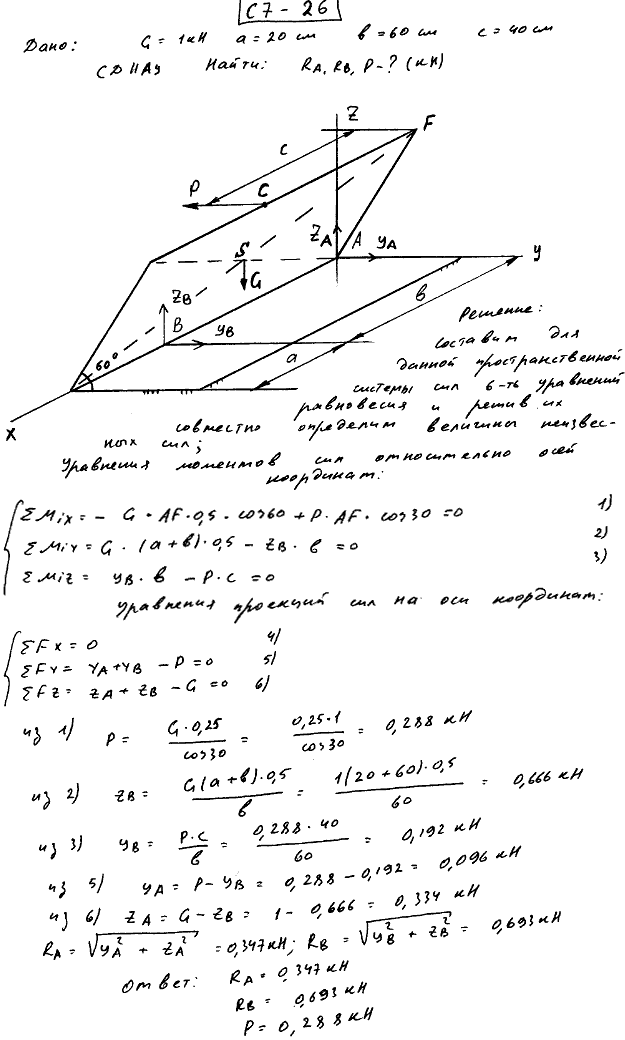 С7 - 26
Дано: G = 1 кН a = 20 см в = 60 см c = 40 см
Найти: RA, RB, P - ? (кН)
Z
F
c
P
C
ZA
A
YA
y
S
G
ZB
B
YB
в
a
60°
X
Решение:
Составим для
данной пространственной
системы сил 6-ть уравнений
равновесия и решив их
совместно определим величины неизвес-
ных сил;
Уравнения моментов сил относительно осей
координат:
ΣMix = - G · AF · 0,5 · cos60 + P · AF · cos30 = 0 1)
ΣMiY = G · (a+в) · 0,5 - ZB · в = 0 2)
ΣMiZ = YB · в - P · c = 0 3)
Уравнения проекций сил на оси координат:
ΣFx = 0 4)
ΣFY = YA + YB - P = 0 5)
ΣFZ = ZA + ZB - G = 0 6)
из 1) P = G · 0,25 / cos30 = 0,25 · 1 / cos30 = 0,288 кН
из 2) ZB = G(a+в) · 0,5 / в = 1(20+60) · 0,5 / 60 = 0,666 кН
из 3) YB = P · c / в = 0,288 · 40 / 60 = 0,192 кН
из 5) YA = P - YB = 0,288 - 0,192 = 0,096 кН
из 6) ZA = G - ZB = 1 - 0,666 = 0,334 кН
RA = √(YA² + ZA²) = 0,347 кН; RB = √(YB² + ZB²) = 0,693 кН
Ответ: RA = 0,347 кН
RB = 0,693 кН
P = 0,288 кН